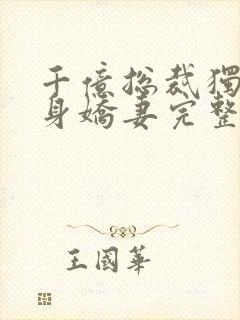 千億総裁獨
身嬌妻完整
王國華